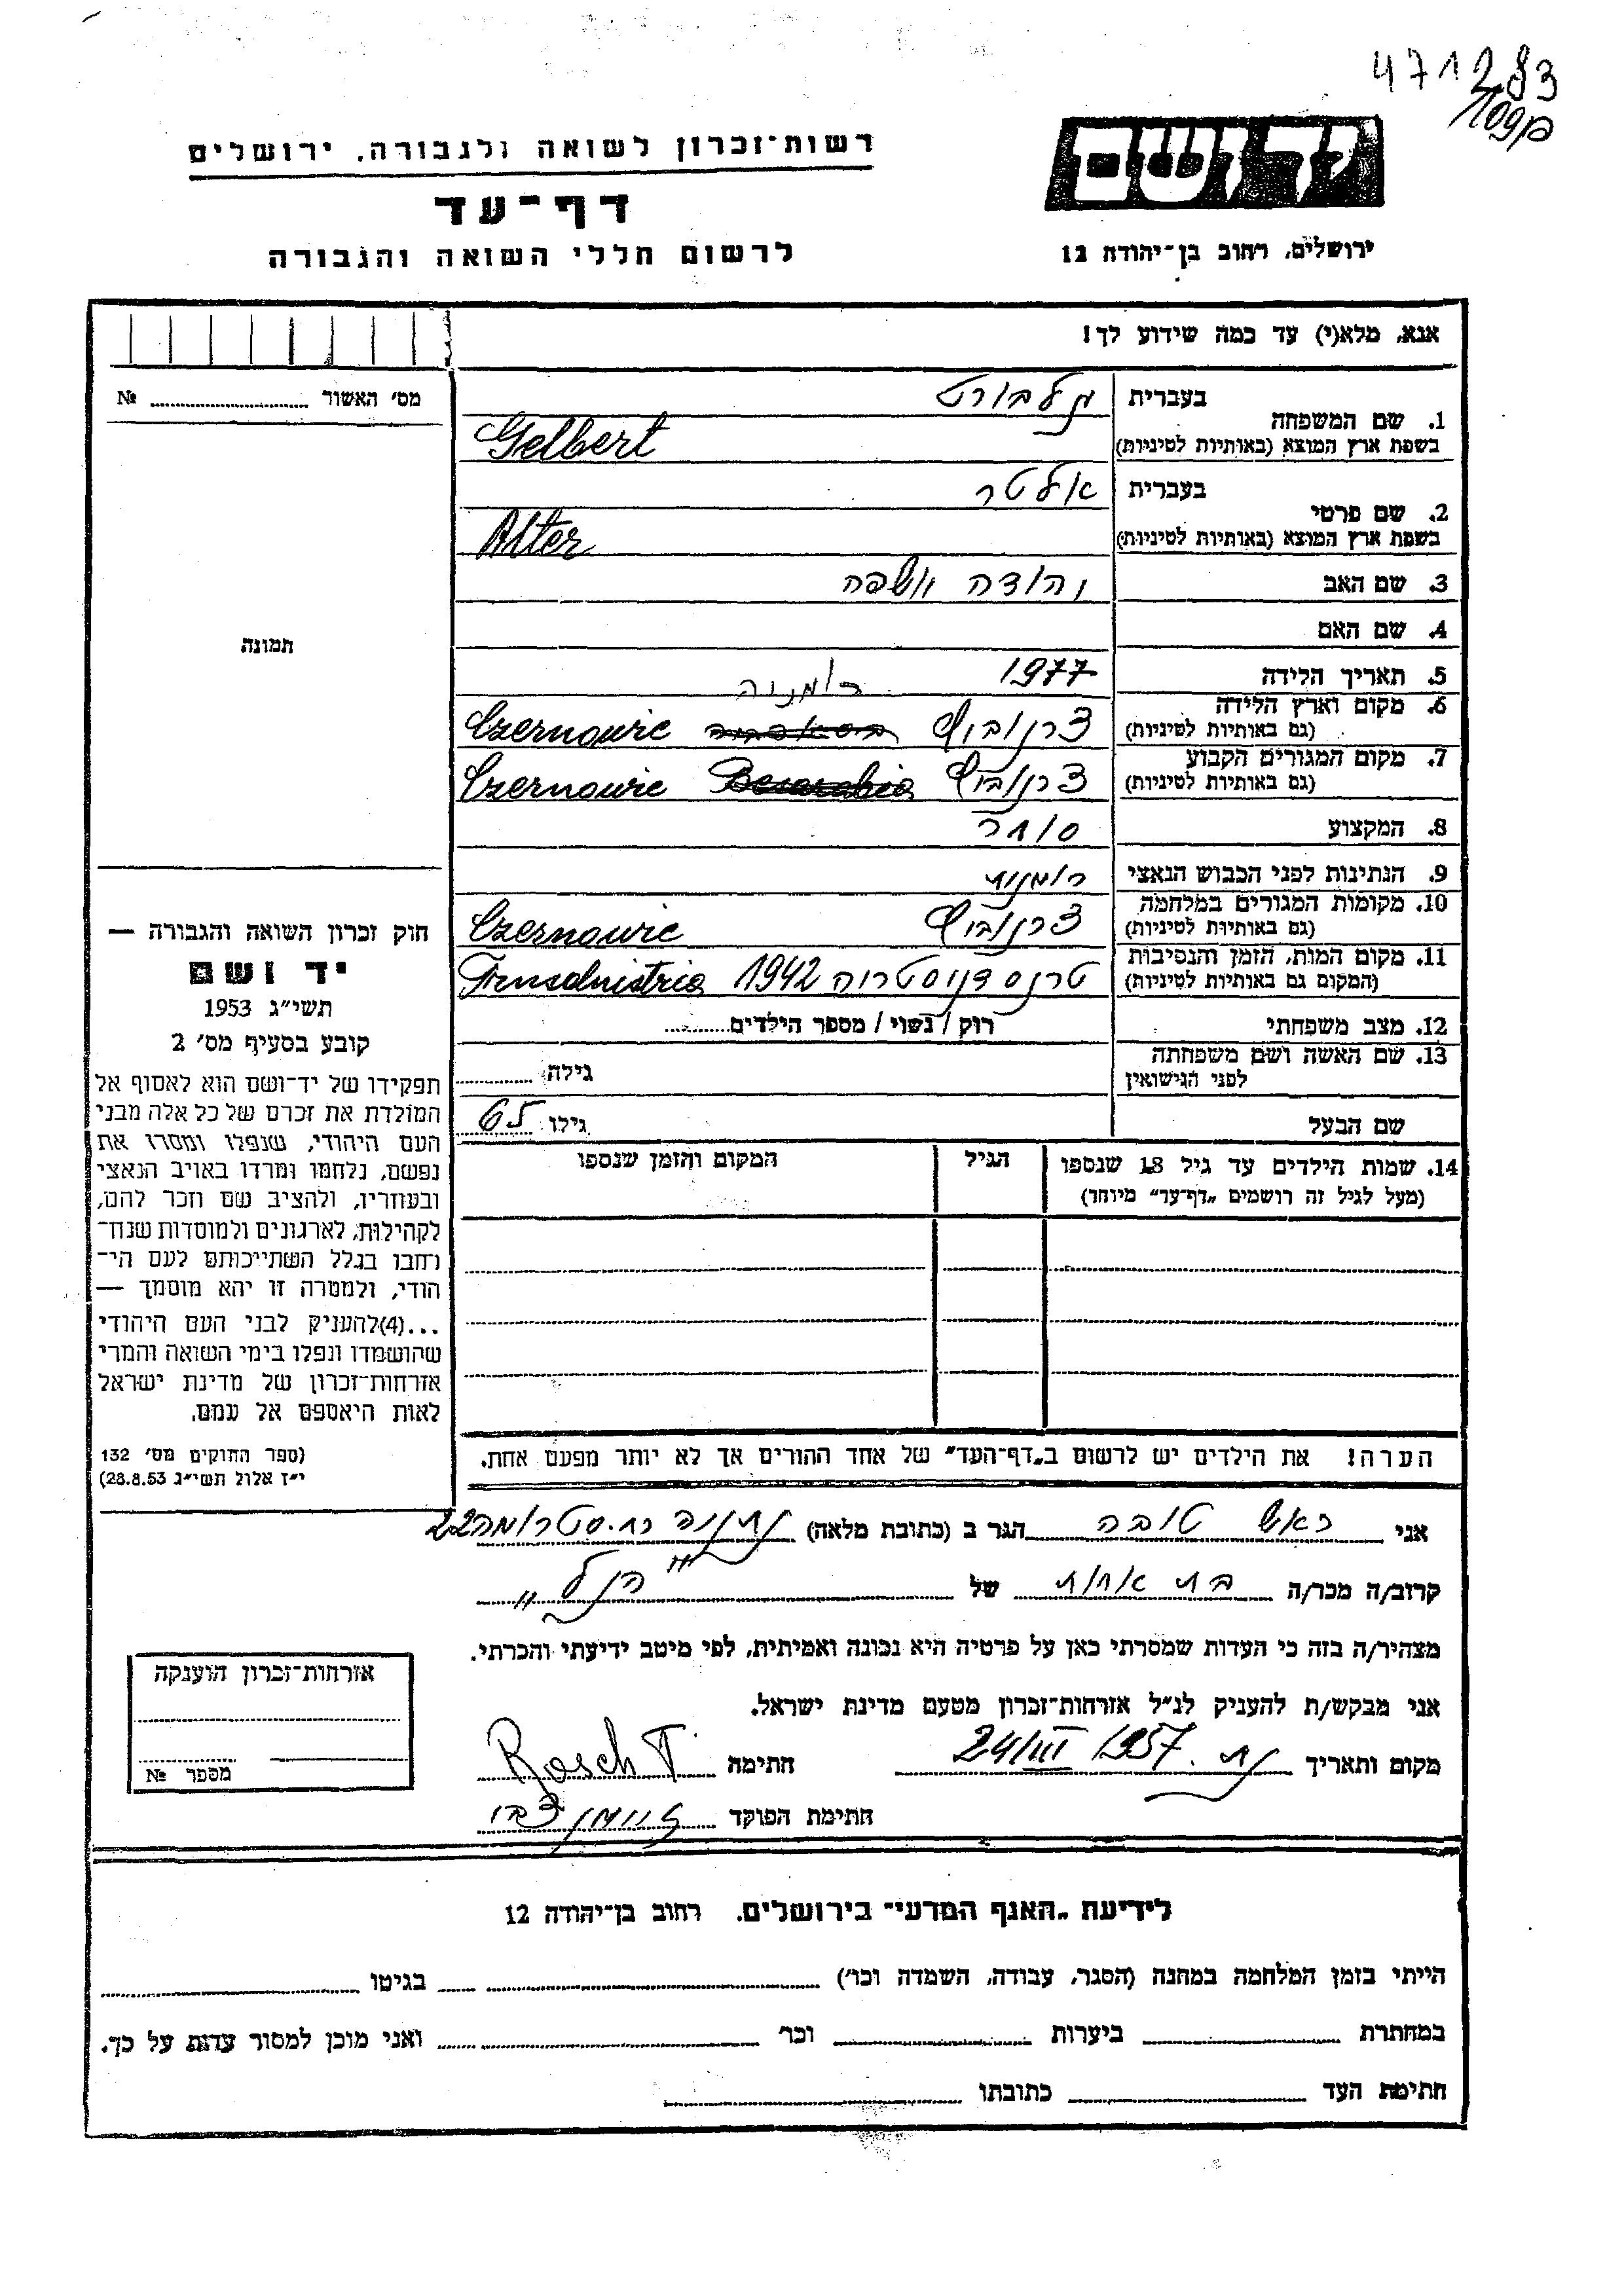 471283
רשות־זכרון לשואה ולגבורה, ירושלים
דף־עד
לרשום חללי השואה והגבורה
ירושלים, רחוב בן־יהודה 12
אנא, מלא(י) עד כמה שידוע לך!
מס׳ האשור № ........
1. שם המשפחה
בעברית גלבורט
בשפת ארץ המוצא (באותיות לטיניות) Gelbert
2. שם פרטי
בעברית אלטר
בשפת ארץ המוצא (באותיות לטיניות) Alter
3. שם האב יהודה
4. שם האם
תמונה
5. תאריך הלידה 1977
רומניה
6. מקום וארץ הלידה
(גם באותיות לטיניות) צרנוביץ Czernowic
7. מקום המגורים הקבוע
(גם באותיות לטיניות) צרנוביץ Besarabia Czernowic
8. המקצוע סוחר
9. הנתינות לפני הכבוש הנאצי רומנית
10. מקומות המגורים במלחמה
(גם באותיות לטיניות) צרנוביץ Czernowic
11. מקום המות, הזמן והנסיבות
(המקום גם באותיות לטיניות) טרנסדניסטריה 1942 Trnsdnistria
12. מצב משפחתי רוק / נשוי / מספר הילדים........
13. שם האשה ושם משפחתה
לפני הנישואין גילה ........
שם הבעל גילו 65
14. שמות הילדים עד גיל 18 שנספו
(מעל לגיל זה רושמים „דף־עד״ מיוחד)
הגיל
המקום והזמן שנספו
חוק זכרון השואה והגבורה —
יד ושם
תשי״ג 1953
קובע בסעיף מס׳ 2
תפקידו של יד־ושם הוא לאסוף אל
המולדת את זכרם של כל אלה מבני
העם היהודי, שנפלו ומסרו את
נפשם, נלחמו ומרדו באויב הנאצי
ובעוזריו, ולהציב שם וזכר להם,
לקהילות, לארגונים ולמוסדות שנח־
רבו בגלל השתייכותם לעם הי־
הודי, ולמטרה זו יהא מוסמך —
...(4)להעניק לבני העם היהודי
שהושמדו ונפלו בימי השואה והמרי
אזרחות־זכרון של מדינת ישראל
לאות היאספם אל עמם.
(ספר החוקים מס׳ 132
י״ז אלול תשי״ג 28.8.53)
הערה! את הילדים יש לרשום ב„דף־העד״ של אחד ההורים אך לא יותר מפעם אחת.
אני ראש טובה הגר ב (כתובת מלאה) נתניה רח. סטרומה 22
קרוב/ה מכר/ה בת אחות של "הנ״ל"
מצהיר/ה בזה כי העדות שמסרתי כאן על פרטיה היא נכונה ואמיתית, לפי מיטב ידיעתי והכרתי.
אני מבקש/ת להעניק לנ״ל אזרחות־זכרון מטעם מדינת ישראל.
מקום ותאריך נת. 24/III 1957 חתימה Rosch T
חתימת הפוקד צבי
אזרחות־זכרון הוענקה
מספר №
לידיעת „האגף המדעי״ בירושלים, רחוב בן־יהודה 12
הייתי בזמן המלחמה במחנה (הסגר, עבודה, השמדה וכו׳) ........ בגיטו ........
במחתרת ........ ביערות ........ וכו׳ ........ ואני מוכן למסור עדות על כך.
חתימת העד ........ כתובתו ........